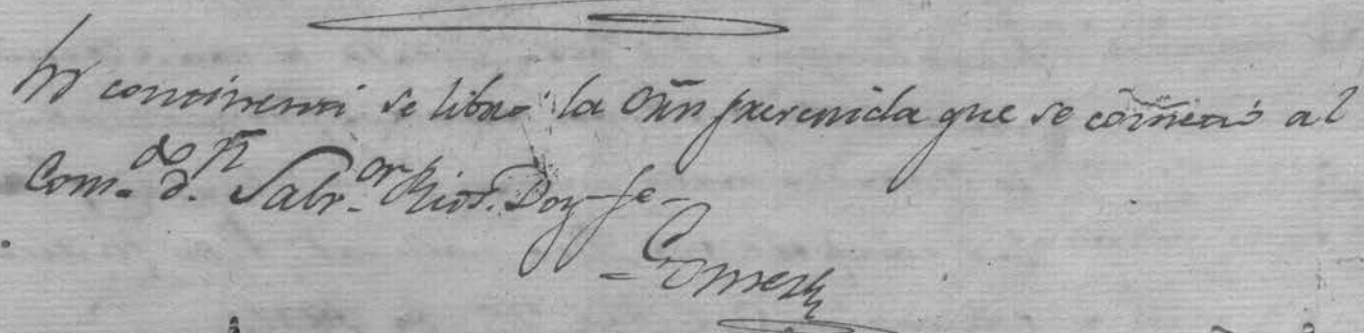 En continenti se libró la Orñ prevenida que se cometió al
Com.do d.n Salv.or Rios. Doy fe
Gomez